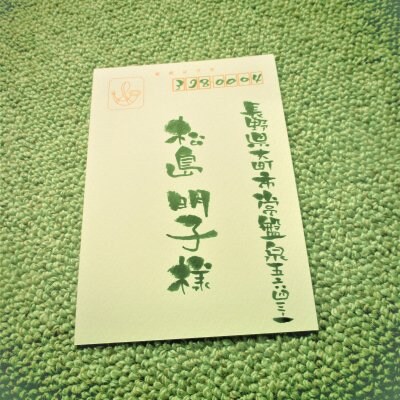 3980004
長野県大町市常盤泉五六四三ー一
松島明子様